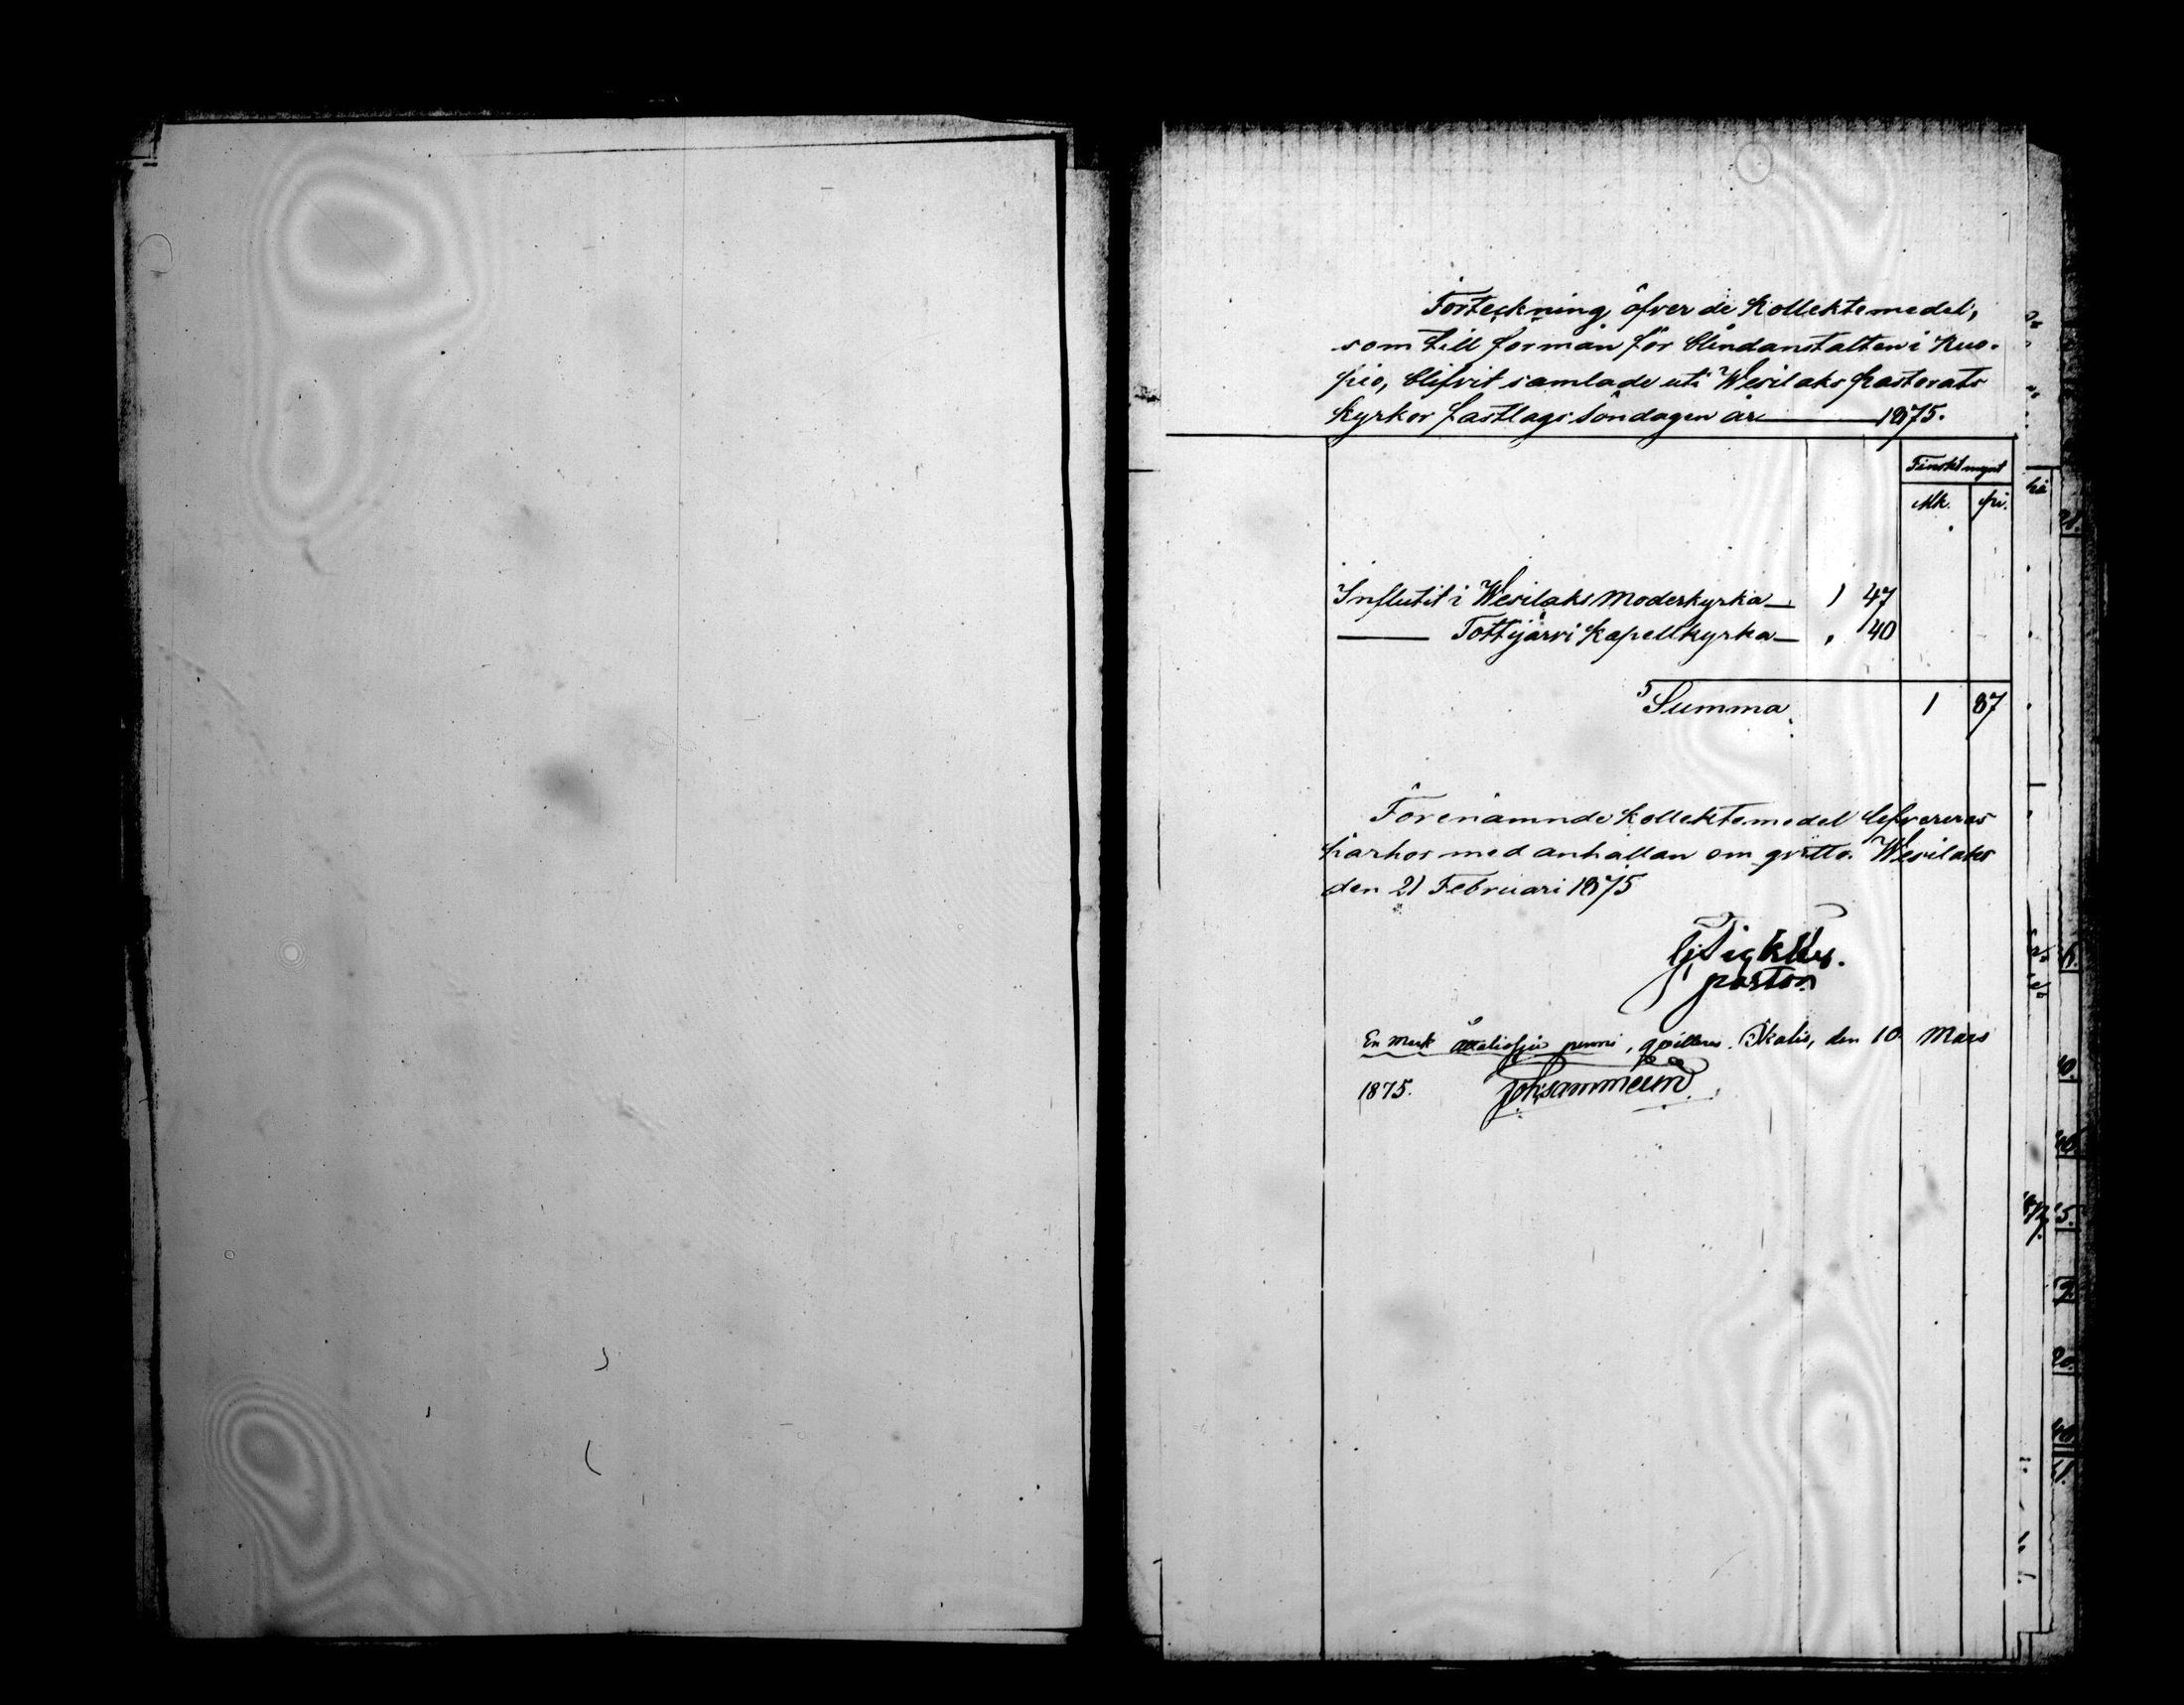 Förteckning öfver de Kollektemedel,
som till förmån för blindanstalten i Kuo-
pio, blifvit samlade uti Wesilaks pastorats
kyrkor fastlags söndagen år 1875.
Finskt mynt
Mk. pi.
Influtit i Wesilaks Moderkyrka — 1 47
— Tottijärvi Kapellkyrka — „ 40
Summa 1 87
Förenämnde Kollektemedel lefvereras
härhos med anhållan om qvitto. Wesilaks
den 21 Februari 1875
pastor
En mark åttatiosju penni, qvitteras. Ikalis, den 10 Mars
1875.